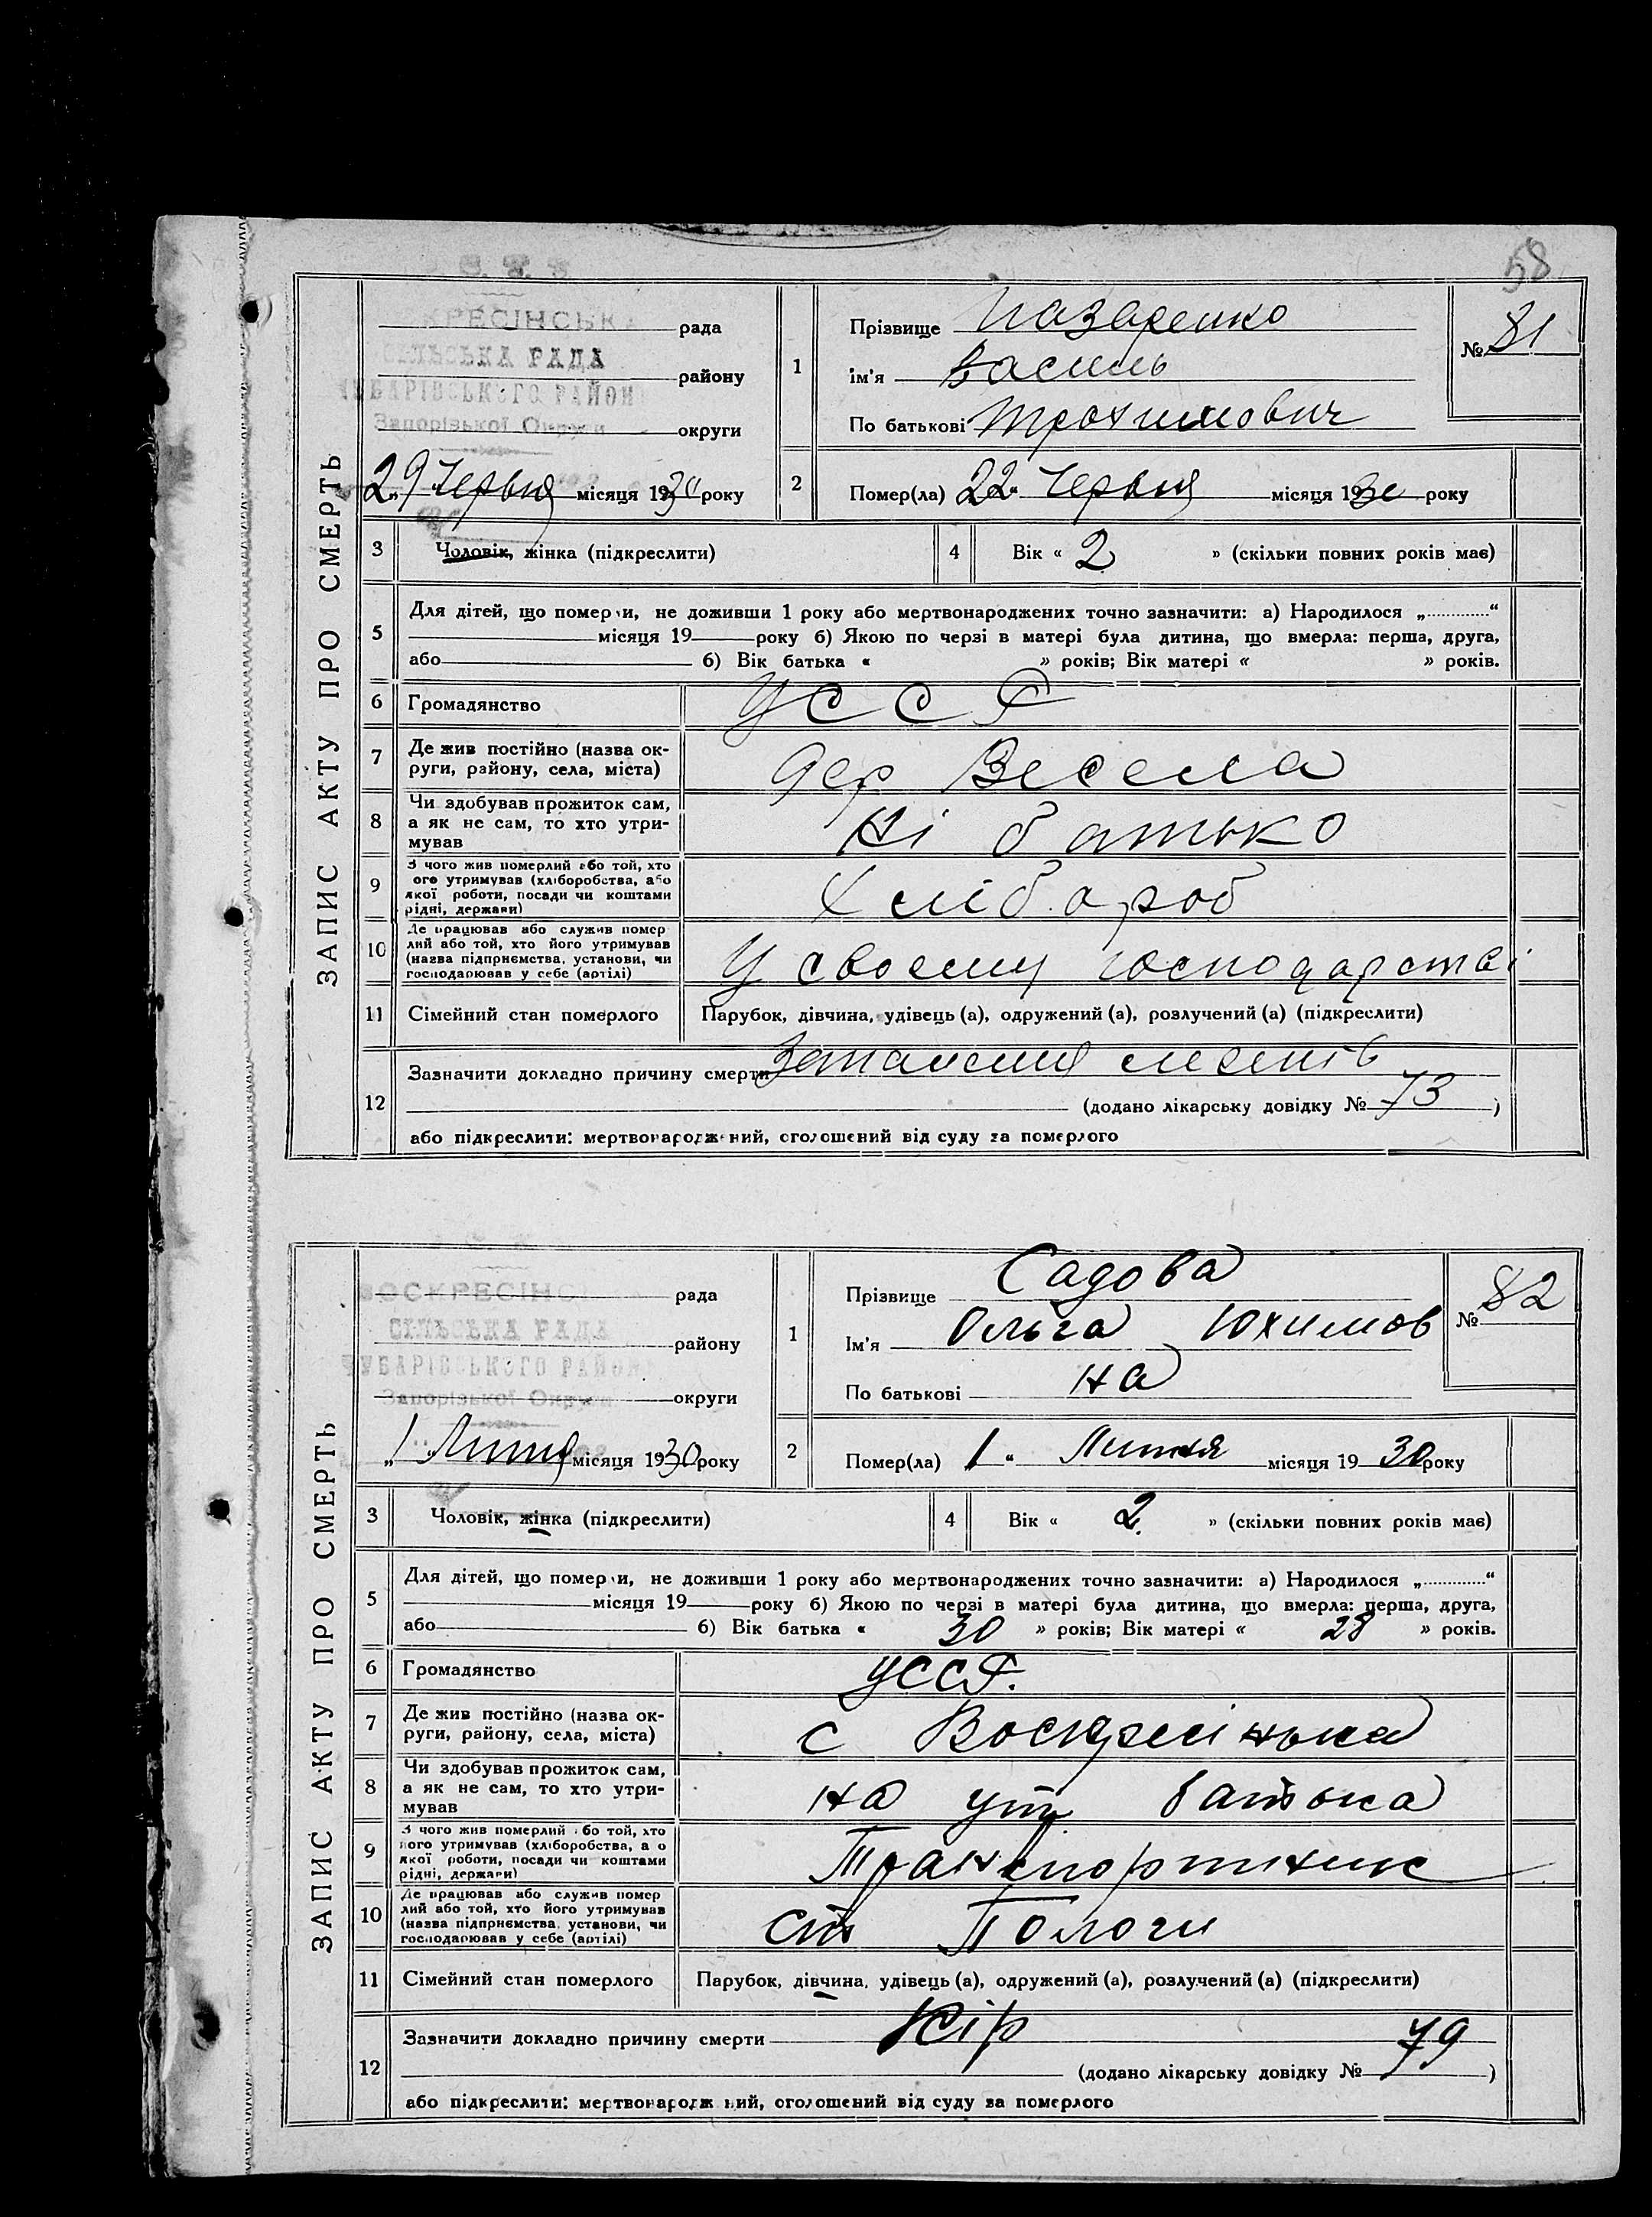 58
ЗАПИС АКТУ ПРО СМЕРТЬ
КРЕСІНСЬКА рада
СІЛЬСЬКА РАДА
району
ЧУБАРІВСЬКОГО РАЙОН
Запорізької Округи
округи
„29 Червня місяця 1930 року
1 Прізвище Назаренко
ім'я Василь
По батькові Трохимович
№ 81
2 Помер(ла) „22“ Червня місяця 1930 року
3 Чоловік, жінка (підкреслити)
4 Вік « 2 » (скільки повних років має)
5 Для дітей, що померли, не доживши 1 року або мертвонароджених точно зазначити: а) Народилося „............“
місяця 19 року б) Якою по черзі в матері була дитина, що вмерла: перша, друга,
або б) Вік батька « » років; Вік матері « » років.
6 Громадянство УССР
7 Де жив постійно (назва ок-
руги, району, села, міста) дер Весела
8 Чи здобував прожиток сам,
а як не сам, то хто утри-
мував Ні батько
9 З чого жив померлий або той, хто
ого утримував (хліборобства, або
якої роботи, посади чи коштами
рідні, держави) Хлібороб
10 Де працював або служив помер
лий або той, хто його утримував
(назва підприємства, установи, чи
господарював у себе (артілі) У своему господарстві
11 Сімейний стан померлого Парубок, дівчина, удівець (а), одружений (а), розлучений (а) (підкреслити)
12 Зазначити докладно причину смерти Запалення легенів
(додано лікарську довідку № 73 )
або підкреслити: мертвонароджений, оголошений від суду за померлого
ЗАПИС АКТУ ПРО СМЕРТЬ
ВОСКРЕСІНС рада
СІЛЬСЬКА РАДА
району
ЧУБАРІВСЬКОГО РАЙОН
Запорізької Округи
округи
„1“ Липня місяця 1930 року
1 Прізвище Садова
Ім'я Ольга Юхимов
По батькові на
№ 82
2 Помер(ла) „1“ Липня місяця 1930 року
3 Чоловік, жінка (підкреслити)
4 Вік « 2 » (скільки повних років має)
5 Для дітей, що померли, не доживши 1 року або мертвонароджених точно зазначити: а) Народилося „............“
місяця 19 року б) Якою по черзі в матері була дитина, що вмерла: перша, друга,
або б) Вік батька « 30 » років; Вік матері « 28 » років.
6 Громадянство УССР.
7 Де жив постійно (назва ок-
руги, району, села, міста) с Воскресінька
8 Чи здобував прожиток сам,
а як не сам, то хто утри-
мував на ут батька
9 З чого жив померлий або той, хто
його утримував (хліборобства, а о
якої роботи, посади чи коштами
рідні, держави) Транспортник
10 Де працював або служив помер
лий або той, хто його утримував
(назва підприємства, установи, чи
господарював у себе (артілі) ст Пологи
11 Сімейний стан померлого Парубок, дівчина, удівець (а), одружений (а), розлучений (а) (підкреслити)
12 Зазначити докладно причину смерти Кір
(додано лікарську довідку № 79 )
або підкреслити: мертвонароджений, оголошений від суду за померлого